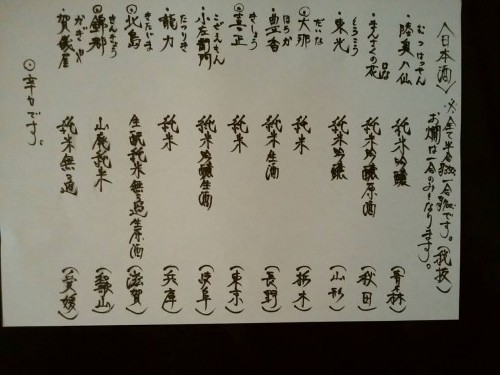 〈日本酒〉 ※全て半合 一合 です。(税抜)
お燗は一合のみとなります。
むつはっせん
・陸奥八仙 純米吟醸 (青森)
・まんさくの花 純米吟醸原酒 (秋田)
とうこう
・東光 純米吟醸 (山形)
だいな
◎大那 純米 (栃木)
ほうか
◎豊香 純米生酒 (長野)
きしょう
◎喜正 純米 (東京)
こざえもん
・小左衛門 純米吟醸生酒 (岐阜)
たつりき
・龍力 純米 (兵庫)
きたじま
◎北島 生酛純米無濾過生原酒 (滋賀)
山廃純米 (和歌山)
かぎや
・賀儀屋 純米無濾過 (愛媛)
◎辛口です。